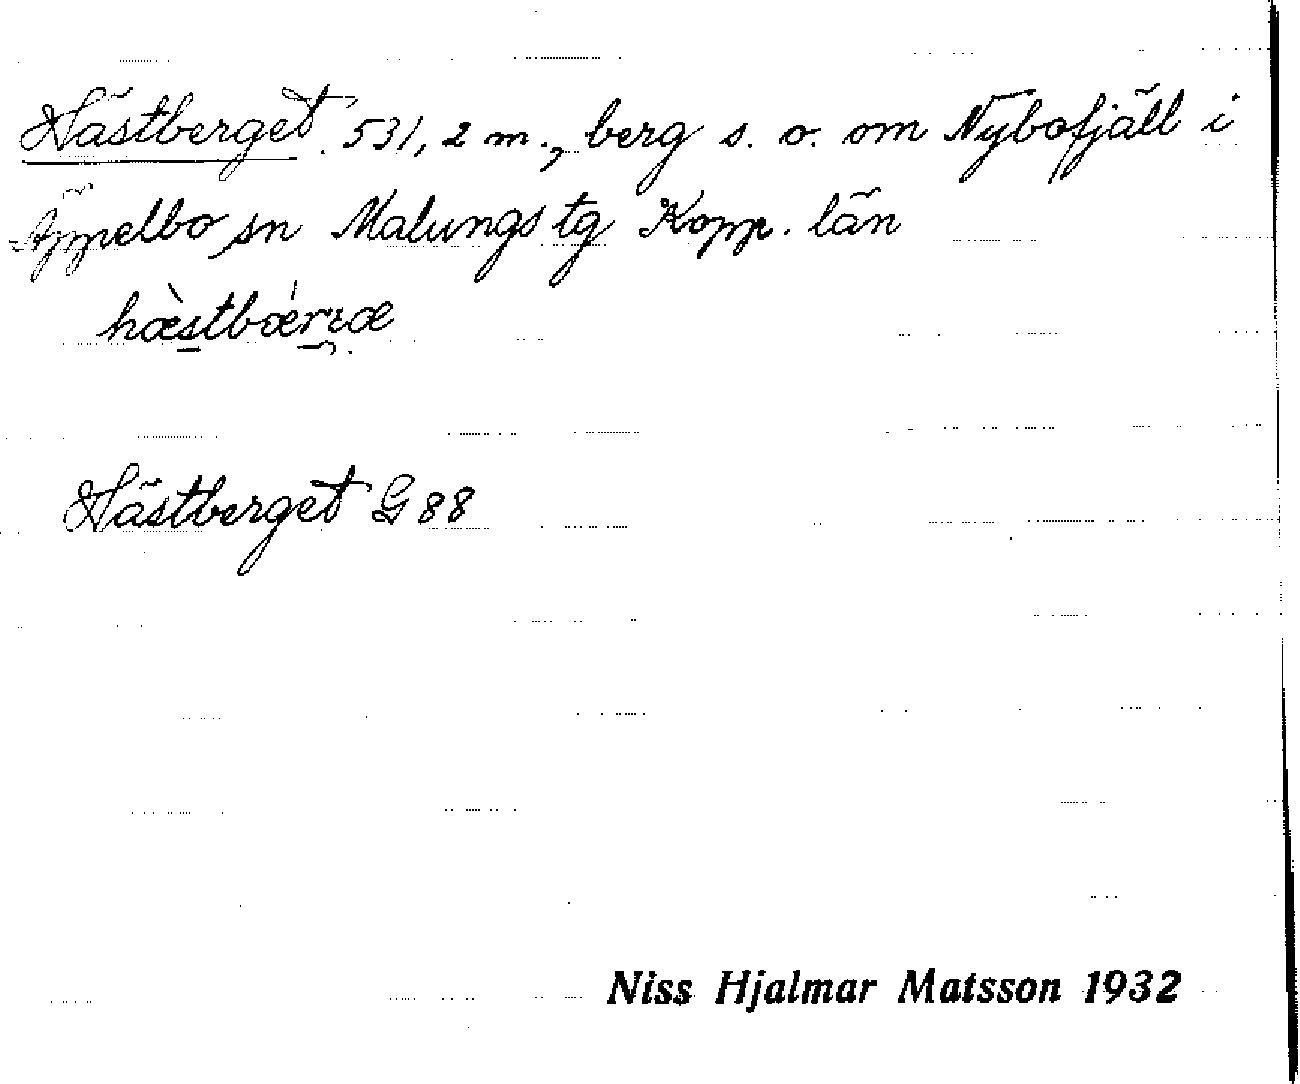 Hästberget 531,2 m., berg s. o. om Nybofjäll i
Äppelbo sn Malungs tg Kopp. län
hæ̀stbǽrʒæ
Hästberget G 88
Niss Hjalmar Matsson 1932